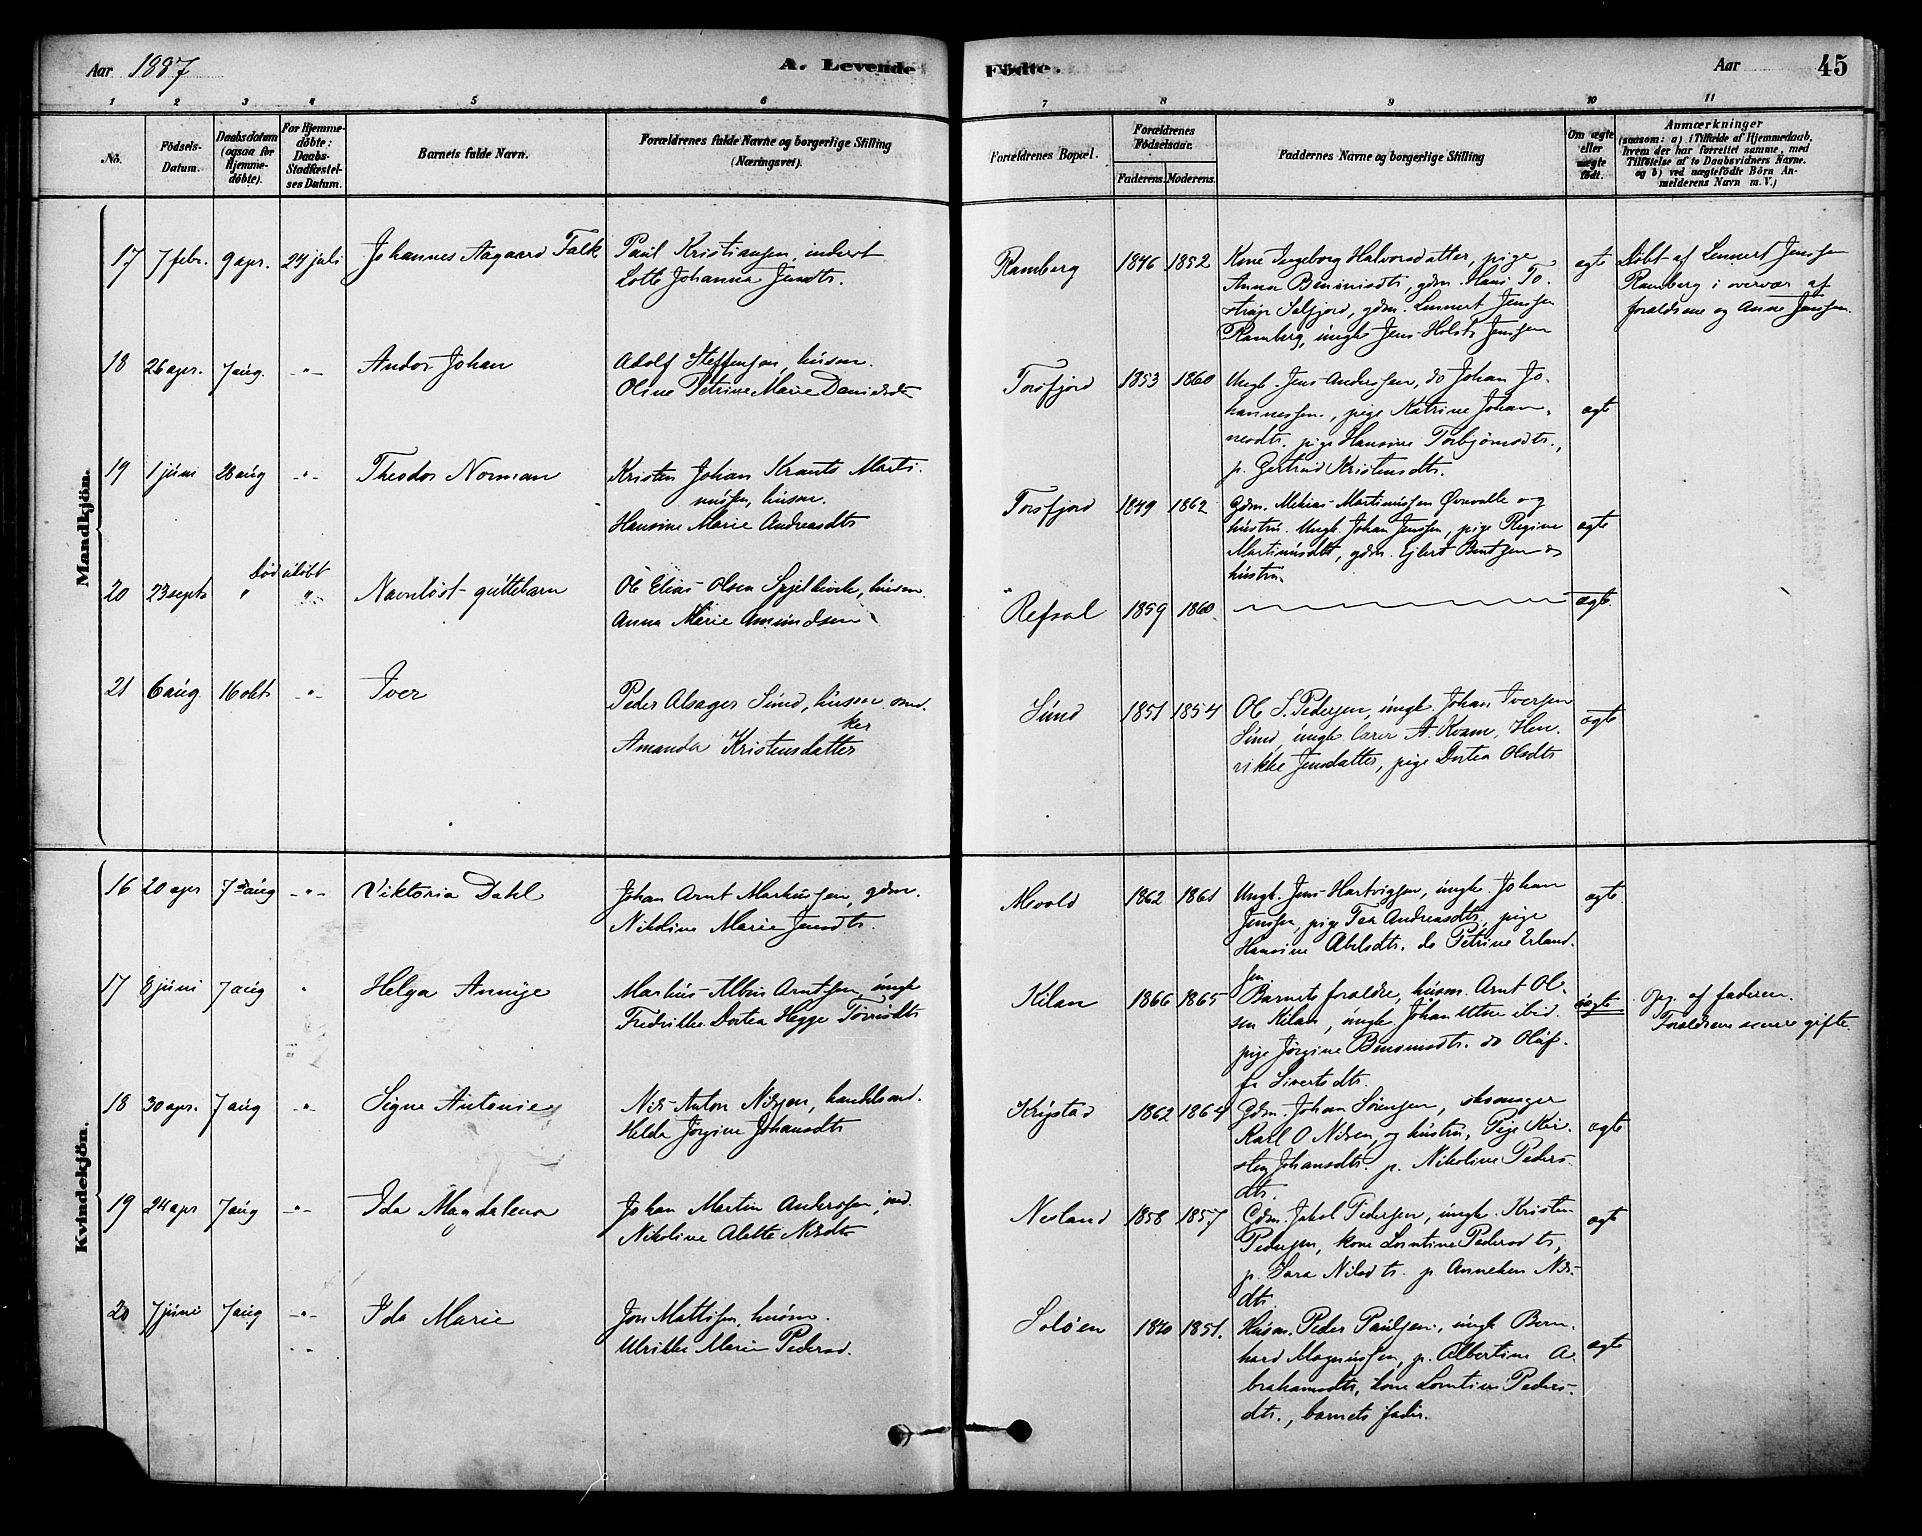 Aar 1887
A. Levende
Födte.
Aar
45
1 2 3 4 5 6 7 8 9 10 11
No.
Födsels-Datum.
Daabsdatum (ogsaa for Hjemme-döbte).
For Hjemme-döbte: Daabs-Stadfæstel-ses Datum.
Barnets fulde Navn.
Forældrenes fulde Navne og borgerlige Stilling (Næringsvei).
Forældrenes Bopæl.
Forældrenes Födselsaar.
Faderens. Moderens.
Faddernes Navne og borgerlige Stilling
Om ægte eller uægte födt.
Anmærkninger
(saasom: a) i Tilfælde af Hjemmedaab,
hvem der har forrettet samme, med
Tilföielse af to Daabsvidners Navne.
og b) ved uægtefödte Börn An-
melderens Navn m. V.)
Mandkjön.
17 7 febr. 9 apr. 24 juli Johannes Aagaard Falk
Paul Kristiansen, inderst
Lotte Johanna Jensdtr.
Ramberg 1846 1852
Kone Ingeborg Halvorsdatter, pige
Anna Benonisdtr, gdm. Hans To-
Selfjord, gdm. Lennert Jenssen
Ramberg, ungk Jens Holst Jenssen
ægte
Døbt af Lennert Jenssen
Ramberg i overvær af
forældrene og Anne Jenssen.
18 26 apr. 7 aug. -"- Andor Johan
Adolf Steffensen, husm.
Oline Petrine Marie Danielsdtr
Torsfjord 1853 1860
Ungk. Jens Anderssen, do Johan Jo-
hannessen, pige Katrine Johan-
nesdtr. pige Hansine Torbjørnsdtr.,
p. Gertrud Kristensdtr.
ægte
19 1 juni 28 aug -"- Theodor Norman
Kristen Johan Krants Marti-
nussen, husm.
Hansine Marie Andreasdtr
Torsfjord 1849 1862
Gdm. Mekias Martinussen Øvrevolle og
hustru. Ungk. Johan Jenssen, pige Regine
Martinusdtr, gdm. Ejlert Bentzen og
hustru.
ægte
20 23 septr død udøbt " " Navnløst guttebarn
Ole Elias Olsen Spjelkevik, husm.
Anna Marie Amundsen
Refsal 1859 1860
ægte.
21 6 aug. 16 oktr -"- Iver
Peder Alsager Sund, husm. snd-
ker
Amanda Kristensdatter
Sund 1851 1854
Ole S. Pedersen, ungk Johan Iversen
Sund, ungk lærer A. Kvam, Hen-
rikke Jensdatter, pige Dortea Olsdtr
ægte
Kvindekjön.
16 20 apr 7 aug -"- Viktoria Dahl
Johan Arnt Markussen, gdm.
Nikoline Marie Jensdtr.
Mevold 1862 1861
Ungk. Jens Hartvigsen, ungk. Johan
Jenssen, pige Tea Andreasdtr., pige
Hansine Abelsdtr. do Petrine Erland-
sen
ægte
17 8 juni 7 aug " Helga Annije
Markus Albin Arntsen, ungk
Fredrikke Dortea Hegge Torrisdtr
Kilan 1866 1865
Barnets forældre, husm. Arnt Ol-
sen Kilan, ungk Johan Uttne ibid.
pige Jørgine Benonisdtr. do Oluf-
fa Sivertsdtr.
uægte
Opg. af faderen.
Forældrene senere gifte.
18 30 apr. 7 aug " Signe Antonie
Nils Anton Nilsen, handelsmd.
Helda Jørgine Johansdtr
Krystad 1862 1864
Gdm. Johan Sørensen, skomager
Karl O Nilsen og hustru, Pige Kir-
sten Johansdtr. p. Nikoline Peders-
dtr.
ægte
19 24 apr 7 aug -"- Ida Magdalena
Johan Martin Anderssen, ind.
Nikoline Alette Nilsdtr
Nesland 1858 1857
Gdm. Jakob Pedersen, ungk. Kristen
Pedersen, kone Lorntine Pedersdtr,
p. Sara Nilsdtr. p. Anneken Nils-
dtr.
ægte
20 7 juni 7 aug -"- Ida Marie
Jon Mattisen, husm.
Ulrikke Marie Pedersd.
Soløen 1840 1851.
Husm. Peder Paulsen, ungk Bern-
hard Magnussen, p. Albertine A-
brahamsdtr, kone Lorntine Peders-
dtr., barnets fader.
ægte